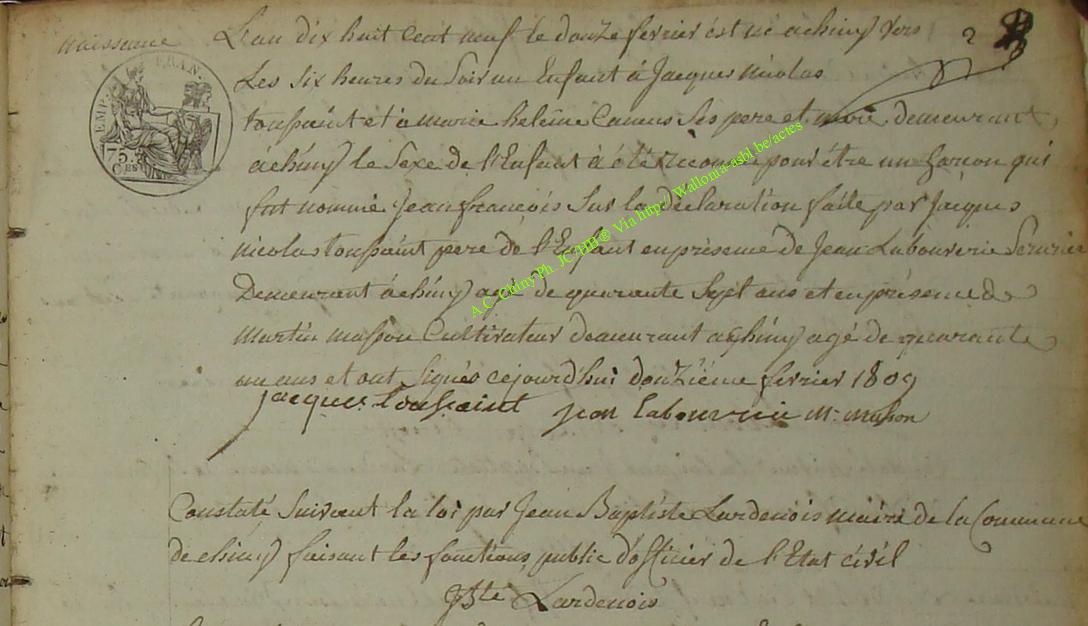 naissance
L'an dix huit cent neuf le douze fevrier est né a chiny vers 2
Les six heures du Soir un Enfant à Jacques nicolas
EMP. FRAN.
75. Ces
toussaint et à marie heleine Ses pere et mere demeurant
achiny le Sexe de l'Enfant à été reconnu pour être un Garcon qui
fut nommé jean françois Sur la déclaration faite par Jacques
nicolas toussaint pere de l'Enfant en présence de Jean Labouverie
Demeurant à chiny agé de quarante Sept ans et en présence de
martin masson Cultivateur demeurant achiny agé de quarante
un ans et ont Signés cejourd'hui douzième fevrier 1809
jacques toussaint jean labouverie M. masson
A.C. Chiny Ph. JC HB® Via http//Wallonia-asbl.be/actes
Constaté Suivant la loi par Jean Baptiste Lardenois maire de la Commune
de chiny faisant les fonctions public d'officier de l'Etat civil
JBte Lardenois